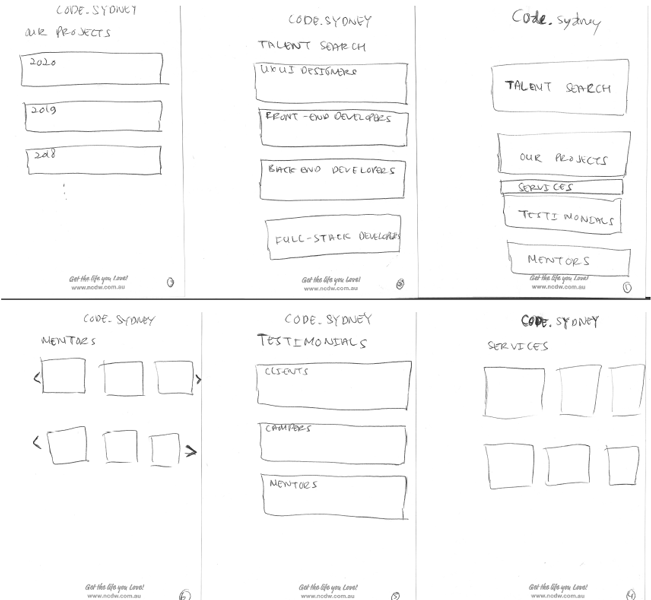 CODE.SYDNEY
OUR PROJECTS
2020
2019
2018
Get the life you Love!
www.ncdw.com.au
3
CODE.SYDNEY
TALENT SEARCH
UXUI DESIGNERS
FRONT-END DEVELOPERS
BACK END DEVELOPERS
FULL-STACK DEVELOPERS
Get the life you Love!
www.ncdw.com.au
2
Code.sydney
TALENT SEARCH
OUR PROJECTS
SERVICES
TESTIMONIALS
MENTORS
Get the life you Love!
www.ncdw.com.au
1
CODE.SYDNEY
MENTORS
< >
< >
Get the life you Love!
www.ncdw.com.au
6
CODE.SYDNEY
TESTIMONIALS
CLIENTS
CAMPERS
MENTORS
Get the life you Love!
www.ncdw.com.au
5
CODE.SYDNEY
SERVICES
Get the life you Love!
www.ncdw.com.au
4